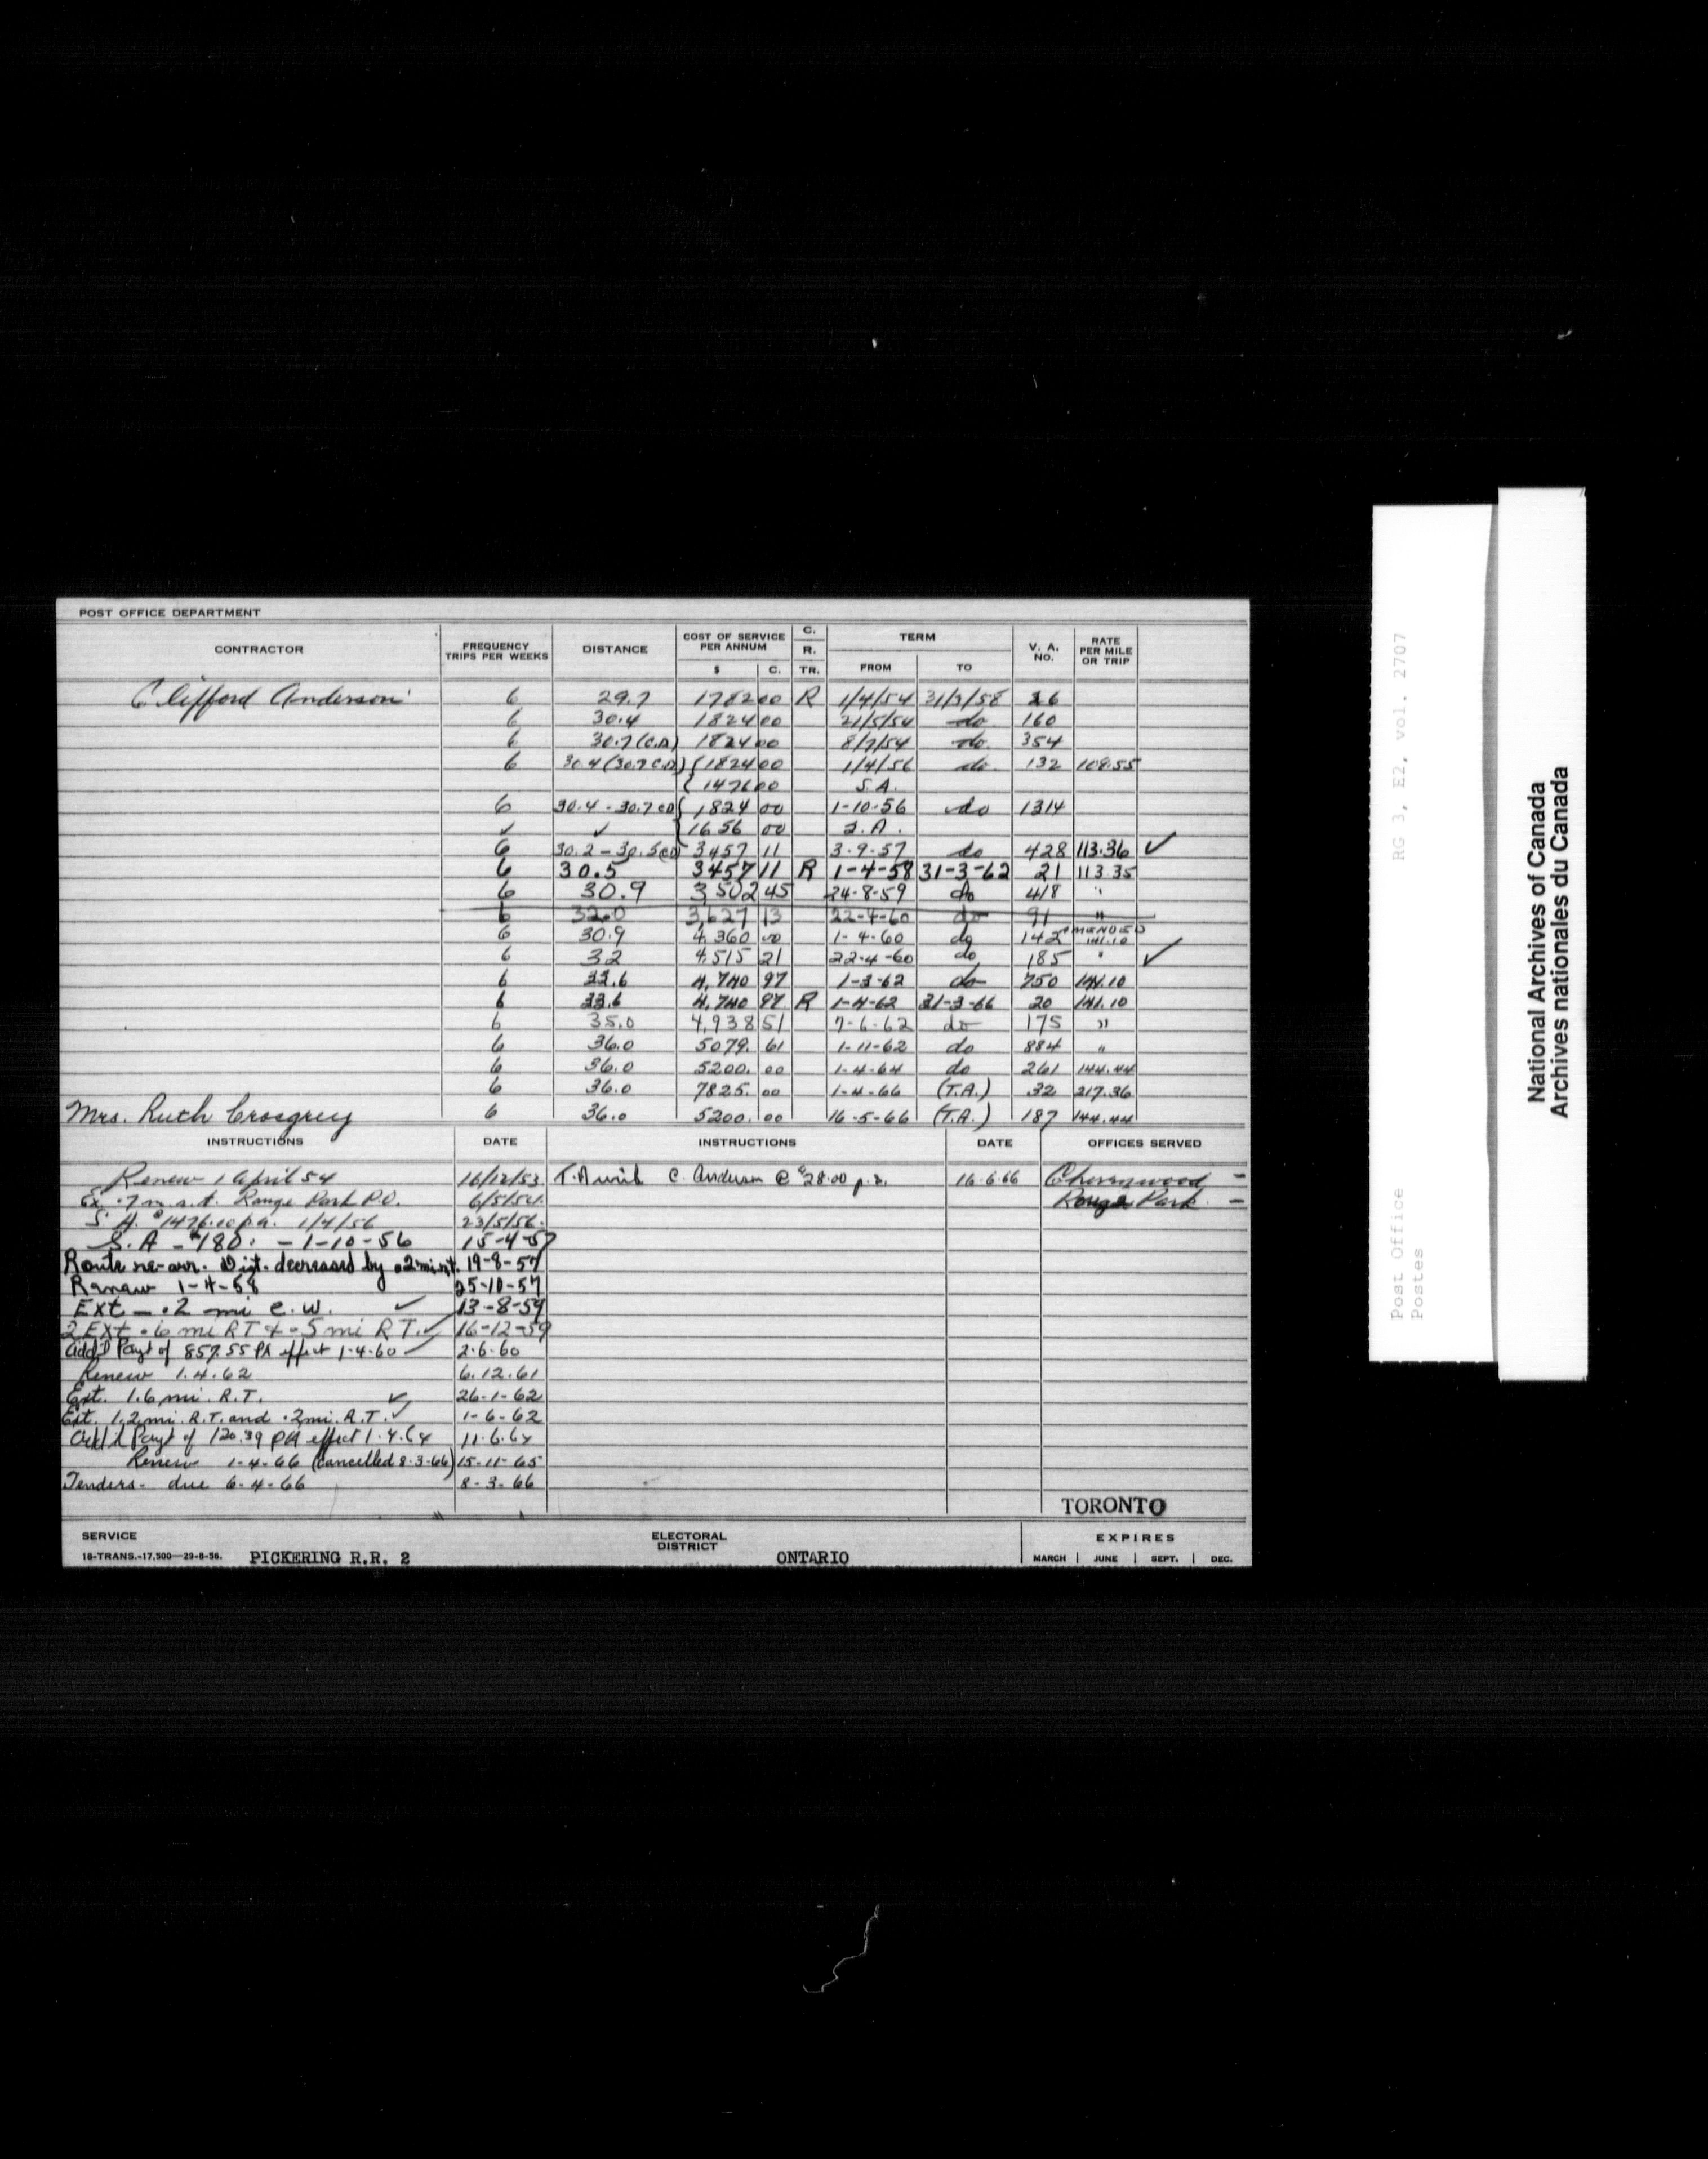 POST OFFICE DEPARTMENT
CONTRACTOR FREQUENCY TRIPS PER WEEKS DISTANCE COST OF SERVICE PER ANNUM $ C. C. R. TR. TERM FROM TO V. A. NO. RATE PER MILE OR TRIP
Clifford Anderson 6 29.7 1782 00 R 1/4/54 31/3/58 26
6 30.4 1824 00 21/5/54 do 160
6 30.7 (C.D) 1824 00 8/7/54 do. 354
6 30.4 (30.7 C.D) { 1824 00 1/4/56 do. 132 108.55
{ 1476 00 S.A.
6 30.4 - 30.7 CD { 1824 00 1-10-56 do 1314
✓ ✓ { 1656 00 S.A.
6 30.2 - 30.5 CD 3457 11 3-9-57 do 428 113.36 ✓
6 30.5 3457 11 R 1-4-58 31-3-62 21 113.35
6 30.9 3,502 45 24-8-59 do 418 "
6 32.0 3,627 13 22-4-60 do 91 "
6 30.9 4,360 00 1-4-60 do 142 AMENDED 141.10
6 32 4,515 21 22-4-60 do 185 " ✓
6 33.6 4,740 97 1-3-62 do 750 141.10
6 33.6 4,740 97 R 1-4-62 31-3-66 20 141.10
6 35.0 4,938 51 7-6-62 do 175 "
6 36.0 5079. 61 1-11-62 do 884 "
6 36.0 5200. 00 1-4-64 do 261 144.44
6 36.0 7825. 00 1-4-66 (T.A.) 32 217.36
Mrs. Ruth Crosgrey 6 36.0 5200. 00 16-5-66 (T.A.) 187 144.44
INSTRUCTIONS DATE INSTRUCTIONS DATE OFFICES SERVED
Renew 1 April 54 16/12/53 T.A with C. Anderson @ $28.00 p.d. 16.6.66 Cherrywood -
Ex .7 m. r.t. Rouge Park P.O. 6/5/54. Rouge Park -
S.A. $1476.00 p.a. 1/4/56 23/5/56.
S.A - $180. - 1-10-56 15-4-57
Route re-arr. Dist. decreased by .2 mi r.t. 19-8-57
Renew 1-4-58 25-10-57
Ext - .2 mi e.w. ✓ 13-8-59
2 Ext .6 mi RT & .5 mi RT. ✓ 16-12-59
Add'l Payt of 857.55 PA effect 1-4-60 ✓ 2-6-60
Renew 1.4.62 6.12.61
Ext. 1.6 mi. R.T. ✓ 26-1-62
Ext. 1.2 mi. R.T. and .2 mi. R.T. ✓ 1-6-62
Add'l Payt of 120.39 PA effect 1.4.64 11.6.64
Renew 1-4-66 (cancelled 8-3-66) 15-11-65
Tenders - due 6-4-66 8-3-66
TORONTO
SERVICE ELECTORAL DISTRICT EXPIRES
18-TRANS.-17,500—29-8-56. PICKERING R.R. 2 ONTARIO MARCH JUNE SEPT. DEC.
RG 3, E2, vol. 2707
Post Office
Postes
National Archives of Canada
Archives nationales du Canada